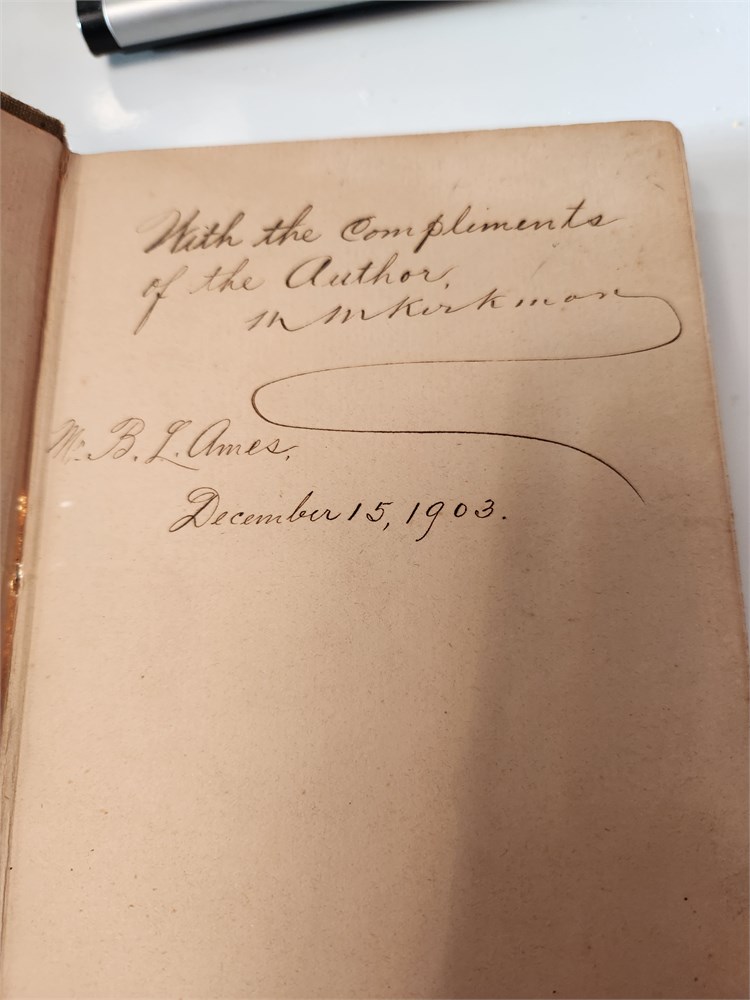 With the Compliments
of the Author,
M M Kirkman
Mr. B. L. Ames.
December 15, 1903.